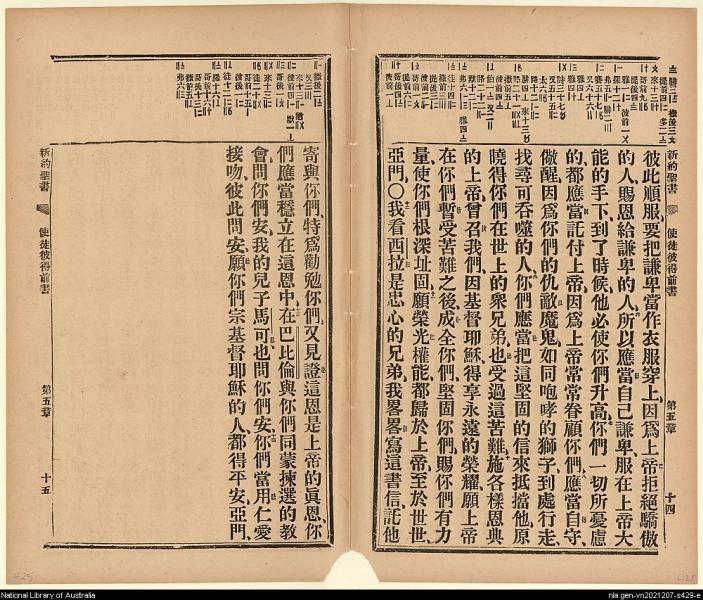 新約聖書
使徒彼得前書
第五章
十四
彼此順服、要把謙卑當作衣服穿上、因爲上帝拒絕驕傲
的人、賜恩給謙卑的人、所以應當自己謙卑、服在上帝大
能的手下、到了時候他必使你們升高、你們一切所憂慮
的、都應當託付上帝、因爲上帝常常眷顧你們、應當自守、
儆醒、因爲你們的仇敵魔鬼、如同咆哮的獅子、到處行走、
找尋可吞噬的人、你們應當把這堅固的信來抵擋他、原
曉得你們在世上的衆兄弟、也受過這苦難、施各樣恩典
的上帝、曾召我們、因基督耶穌、得享永遠的榮耀、願上帝
在你們暫受苦難之後、成全你們、堅固你們、賜你們有力
量、使你們根深址固、願榮光權能、都歸於上帝、至於世世、
亞門、〇我看西拉是忠心的兄弟、我畧畧寫這書信、託他
寄與你們、特爲勸勉你們、又見證這恩是上帝的眞恩、你
們應當穩立在這恩中、在巴比倫與你們同蒙揀選的教
會問你們安、我的兒子馬可也問你們安、你們當用仁愛
接吻、彼此問安、願你們宗基督耶穌的人、都得平安、亞門、
新約聖書
使徒彼得前書
第五章
十五
National Library of Australia
nla.gen-vn2021207-s429-e